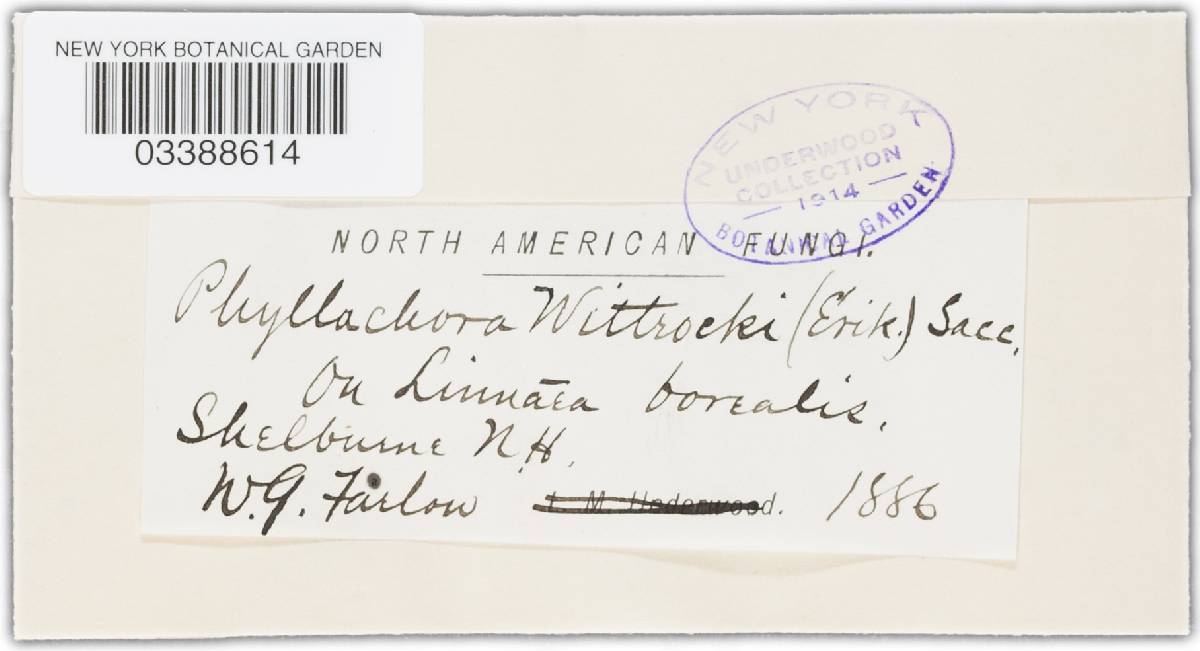 NEW YORK BOTANICAL GARDEN
03388614
NEW YORK
UNDERWOOD
COLLECTION
— 1914 —
BOTANICAL GARDEN.
NORTH AMERICAN FUNGI.
Phyllachora Wittrocki (Erik.) Sacc.
On Linnaea borealis.
Shelburne N.H.
W.G. Farlow L. M. Underwood. 1886